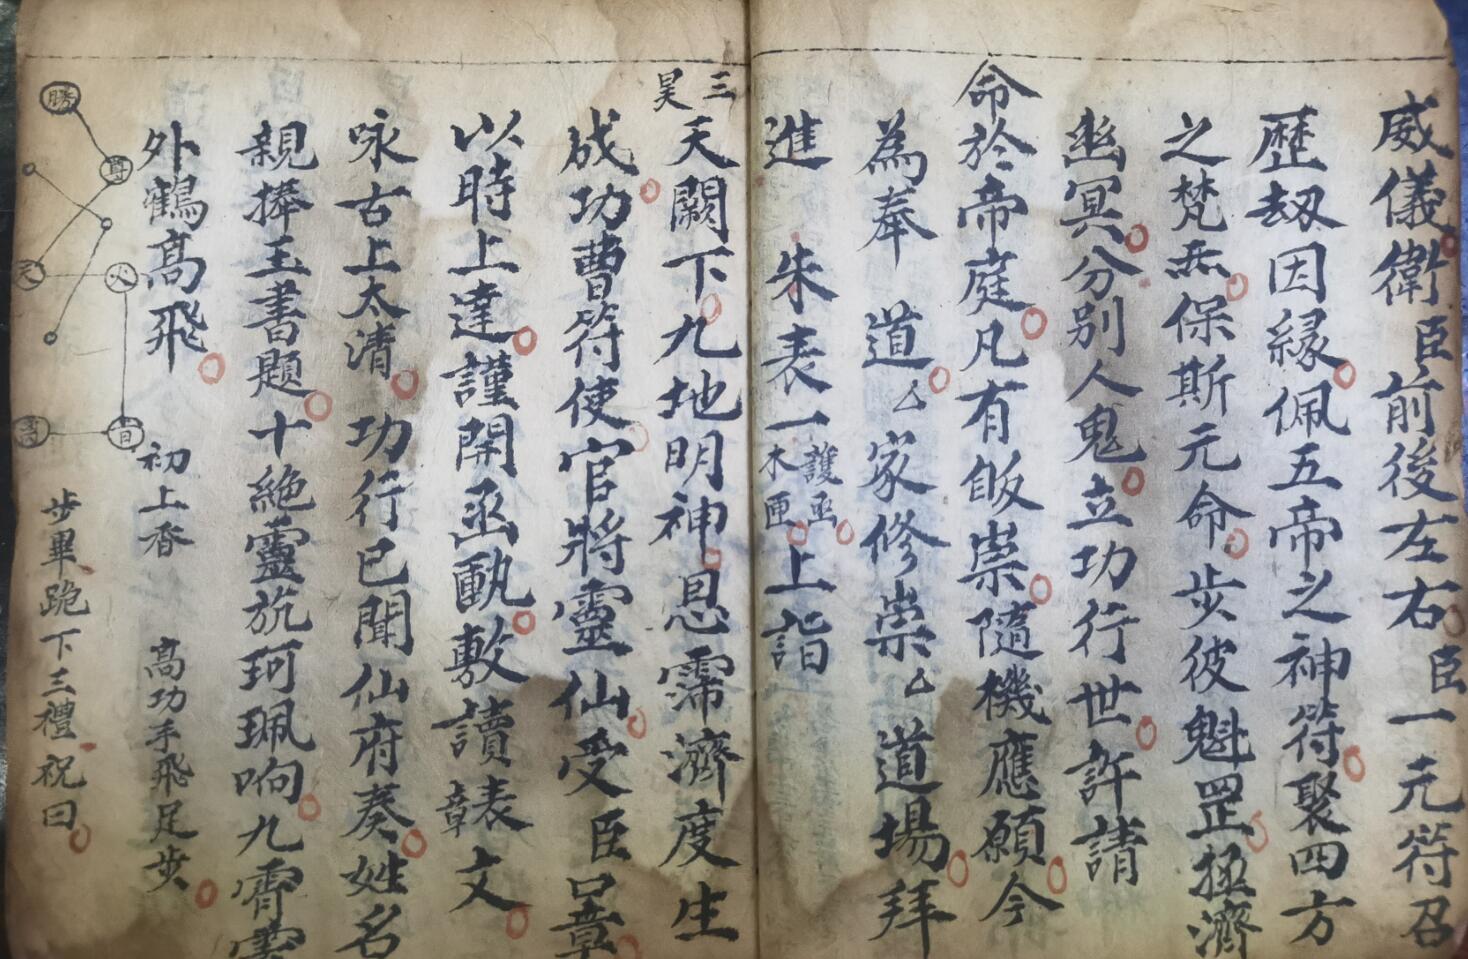 威儀衛臣前後左右臣一元符召
歷劫因緣佩五帝之神符聚四方
之梵炁保斯元命步彼魁罡拯濟
幽冥分別人鬼立功行世許請
命於帝庭凡有皈崇隨機應願今
為奉 道厶家修崇厶道場拜
進 朱表一
護函
木匣
上詣
三
昊
天闕下九地明神恩霈濟度生
成功曹符使官將靈仙受臣呈章
以時上達謹開函
敷讀表文
章
咏古上太清功行已聞仙府奏姓名
親捧玉書題十絶靈旂珂珮响九霄雲
外鶴高飛 初上香 高功手飛足步
步畢跪下三禮祝曰
勝
尊
天
火